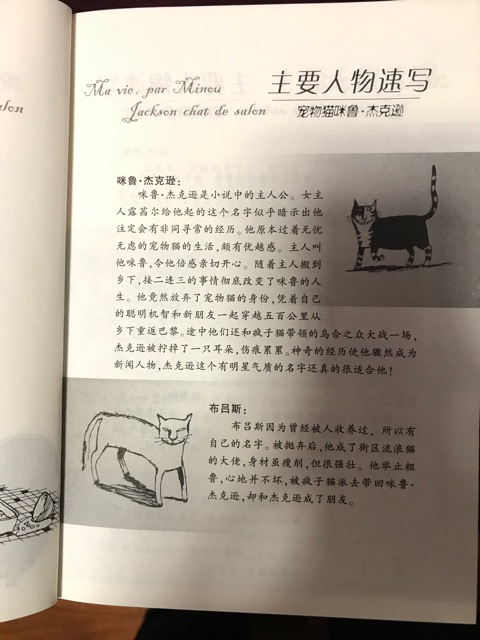 alon
Ma vie, par Minou
Jackson chat de salon
主要人物速写
宠物猫咪鲁·杰克逊
咪鲁·杰克逊：
咪鲁·杰克逊是小说中的主人公。女主
人露茜尔给他起的这个名字似乎暗示出他
注定会有非同寻常的经历。他原本过着无忧
无虑的宠物猫的生活,颇有优越感。主人叫
他咪鲁,令他倍感亲切开心。随着主人搬到
乡下,接二连三的事情彻底改变了咪鲁的人
生。他竟然放弃了宠物猫的身份,凭着自己
的聪明机智和新朋友一起穿越五百公里从
乡下重返巴黎。途中他们还和疯子猫带领的乌合之众大战一场,
杰克逊被拧掉了一只耳朵,伤痕累累。神奇的经历使他骤然成为
新闻人物,杰克逊这个有明星气质的名字还真的很适合他!
布吕斯：
布吕斯因为曾经被人收养过，所以有
自己的名字。被抛弃后,他成了街区流浪猫
的大佬,身材虽瘦削,但很强壮。他举止粗
鲁,心地并不坏,被疯子猫派去带回咪鲁·
杰克逊,却和杰克逊成了朋友。